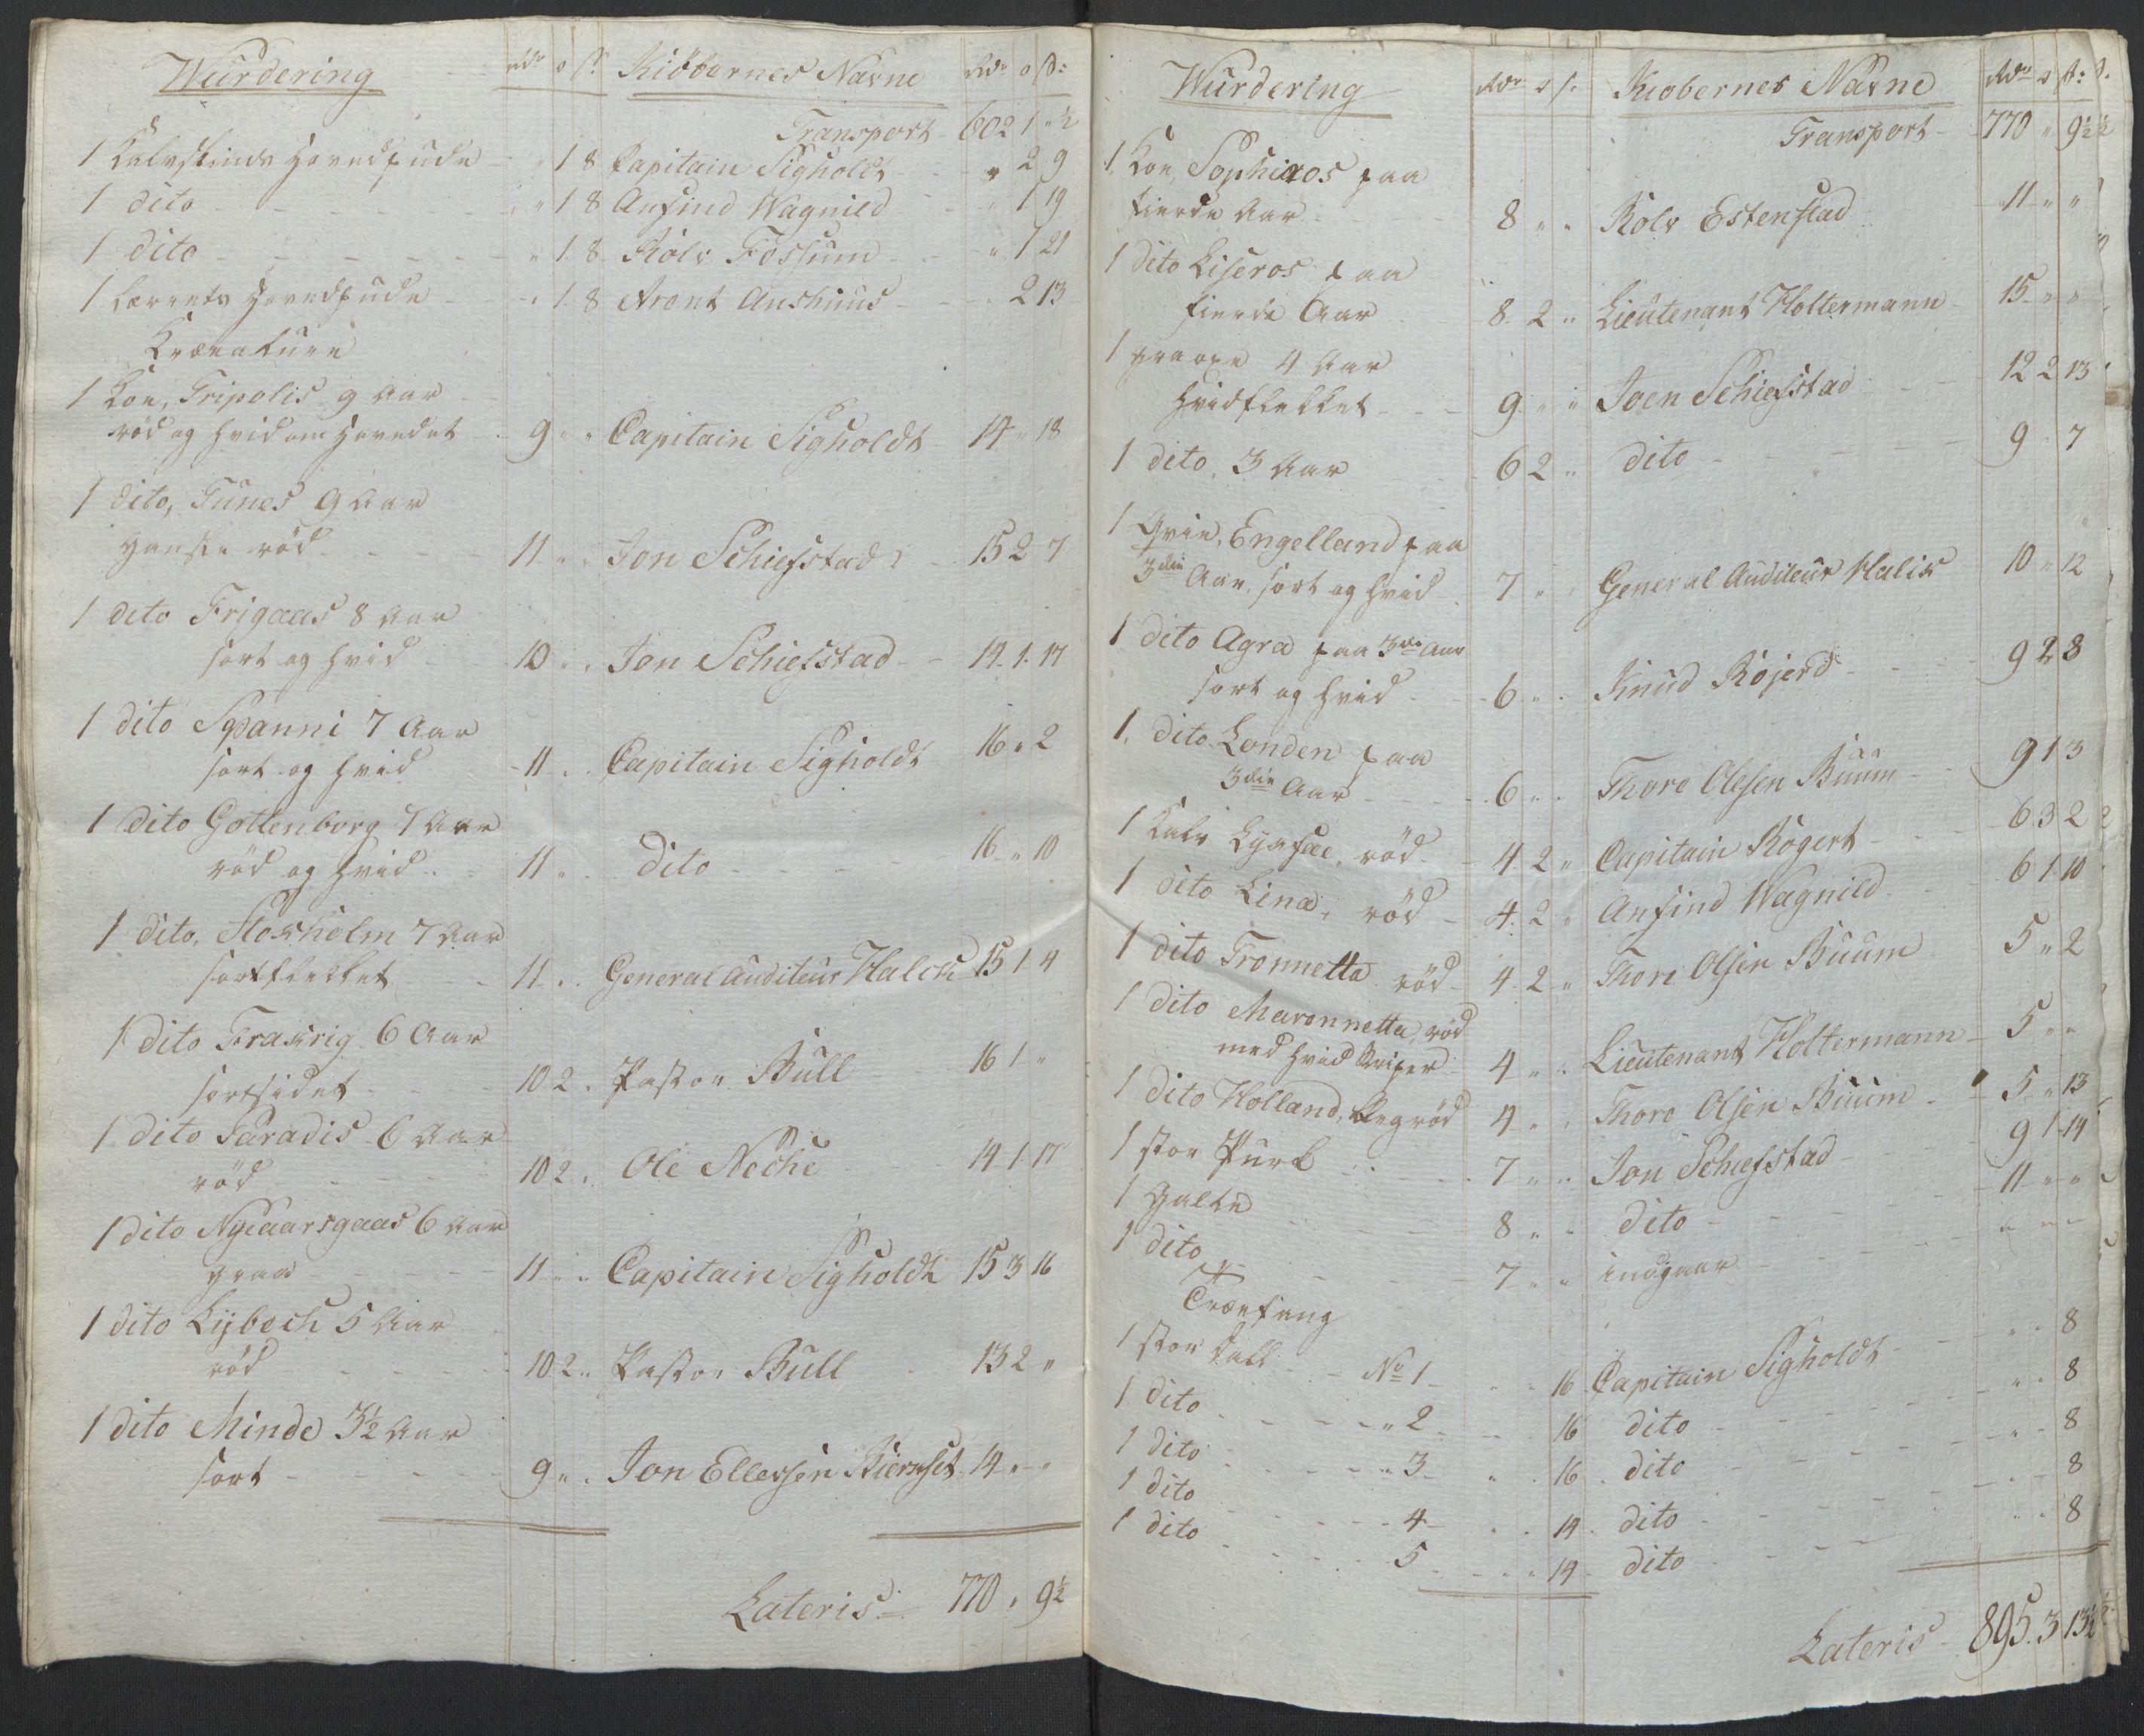 Wurdering rdr o ſs. Kiöbernes Navne Rdr o ſs:
Transport 602 1 " ½
1 Kalvskinds Hovedpude " 1 8 Capitain Sigholdt " 2 9
1 dito " 1 8 Anfind Wagnild " 1 19
1 dito " 1 8 Rolv Fossum " 1 21
1 Lærrets Hovedpude " 1 8 Aront Anshuus " 2 13
Kreaturer
1 Koe, Tripolis 9 Aar
röd og hvid om Hovedet 9 " " Capitain Sigholdt 14 " 18
1 dito, Tunes 9 Aar
ganske röd 11 " " Jon Schiefstad 15 2 7
1 dito Frigaas 8 Aar
sort og hvid 10 " " Jon Schiefstad 14 1 17
1 dito Spanni 7 Aar
sort og hvid 11 " " Capitain Sigholdt 16 " 2
1 dito Gottenborg 7 Aar
röd og hvid 11 " " dito 16 " 10
1 dito, Stokholm 7 Aar
sortflekket 11 " " General Auditeur Halck 15 1 4
1 dito Frakrig 6 Aar
sortsidet 10 2 " Pastor Bull 16 1 "
1 dito Paradis 6 Aar
röd 10 2 " Ole Neche 14 1 17
1 dito Nyeaarsgaas 6 Aar
graa 11 " " Capitain Sigholdt 15 3 16
1 dito Lybech 5 Aar
röd 10 2 " Pastor Bull 13 2 "
1 dito Minde 3½ Aar
sort 9 " " Jon Ellefsen Kiernset 14 " "
Lateris 770 " 9½
Wurdering Rdr o ſs. Kiobernes Navne Rdr o ſs:
Transport 770 " 9½
1 Koe, Sophiaos paa
fierde Aar 8 " " Rolv Estenstad 11 " "
1 dito Liseros paa
fierde Aar 8 2 " Lieutenant Holtermann 15 " "
1 graa oxe 4 Aar
hvidflekket 9 " " Joen Schiefstad 12 2 13
1 dito, 3 Aar 6 2 " dito 9 " 7
1 Qvie, Engelland paa
3die Aar, sort og hvid 7 " " General Auditeur Halck 10 " 12
1 dito Agra paa 3die Aar
sort og hvid 6 " " Knud Röjerd 9 2 8
1 dito Londen paa
3die Aar 6 " " Thore Olesen Buum 9 1 3
1 Kalv Lyksae, röd 4 2 " Capitain Rogert 6 3 2
1 dito Lina, röd 4 2 " Anfind Wagnild 6 1 10
1 dito Tronnetta röd 4 2 " Thore Olsen Buum 5 " 2
1 dito Maronnetta, röd
med hvid 4 " " Lieutenant Holtermann 5 " "
1 dito Holland, Begröd 4 " " Thore Olsen Buum 5 " 13
1 stor Purk 7 " " Jon Schiefstad 9 1 14
1 Galte 8 " " dito 11 " "
1 dito 7 " " indgaar " " "
Træefang
1 stor Sall No 1 " " 16 Capitain Sigholdt " " 8
1 dito " 2 " " 16 dito " " 8
1 dito " 3 " " 16 dito " " 8
1 dito 4 " " 14 dito " " 8
1 dito 5 " " 14 dito " " 8
Lateris 895 3 13½